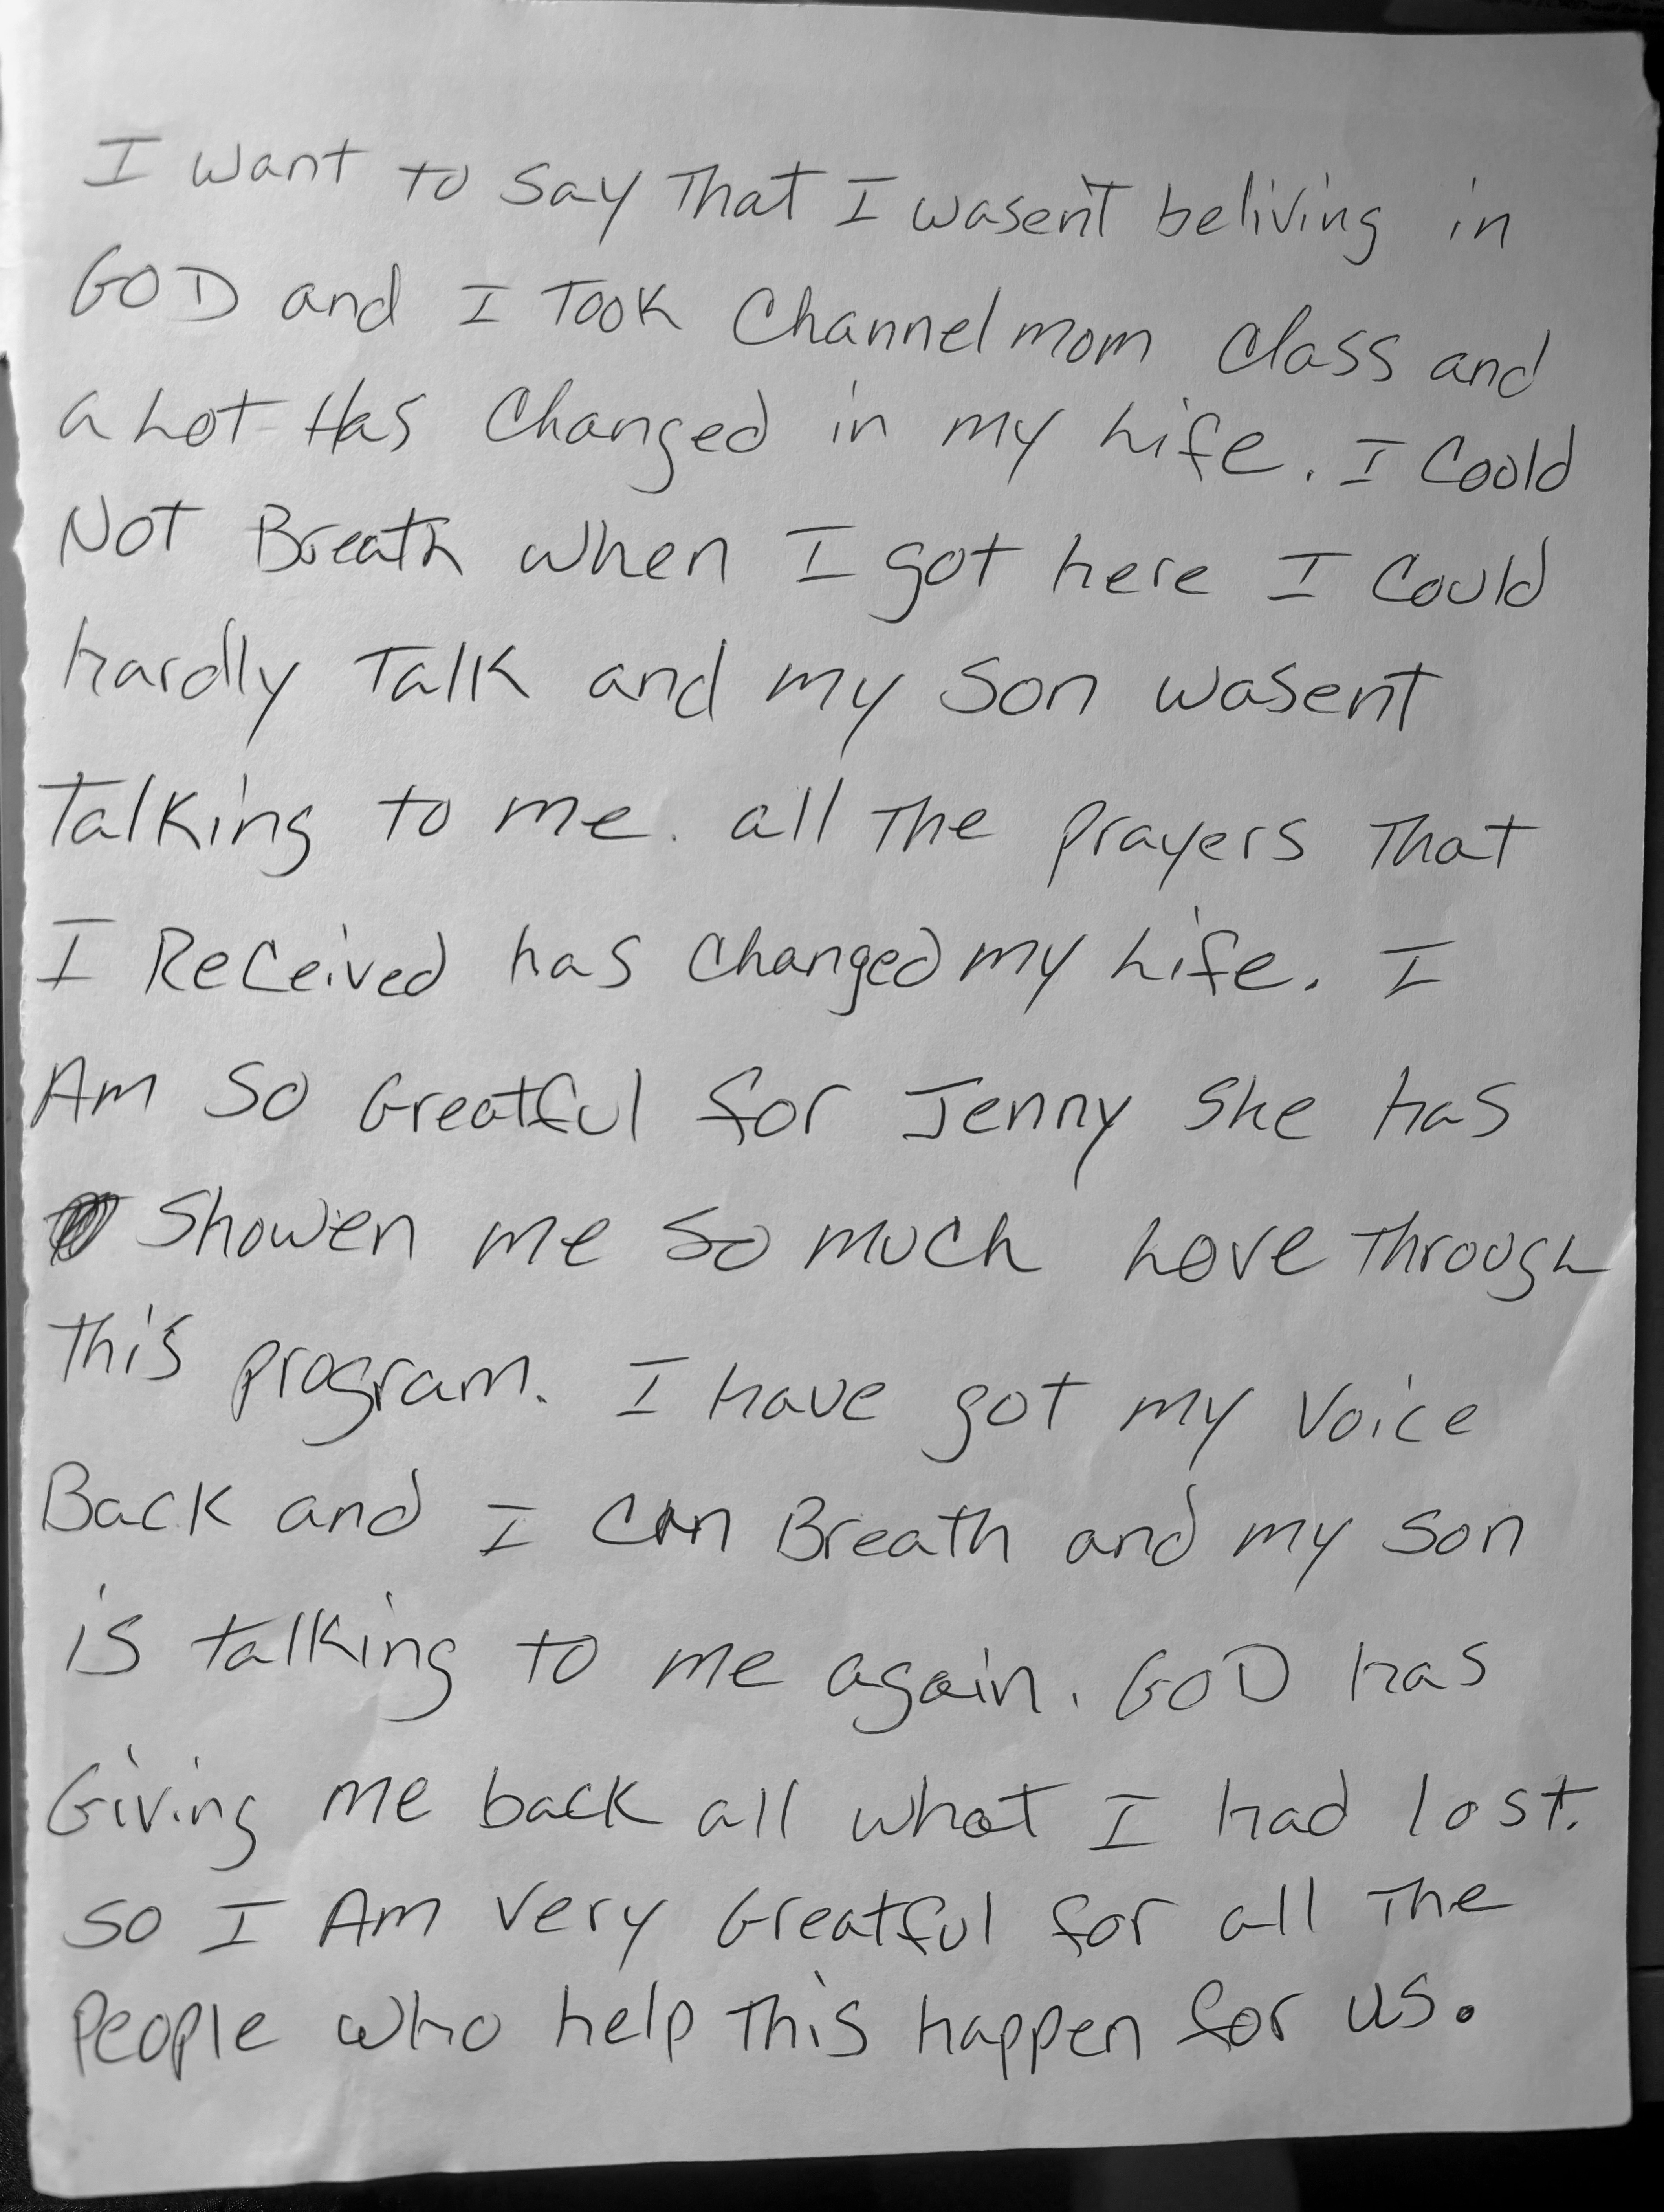 I want to say That I wasen't beliving in
GOD and I Took Channelmom Class and
a Lot Has Changed in my Life. I Coold
Not Breath when I got here I Could
hardly Talk and my Son wasent
Talking to me. all The prayers That
I Received has Changed my Life. I
Am So Greatful for Jenny She has
Showen me So much Love Through
This program. I have got my Voice
Back and I Can Breath and my Son
is talking to me again. GOD has
Giving me back all what I had lost.
So I Am Very Greatful for all The
People who help This happen for us.